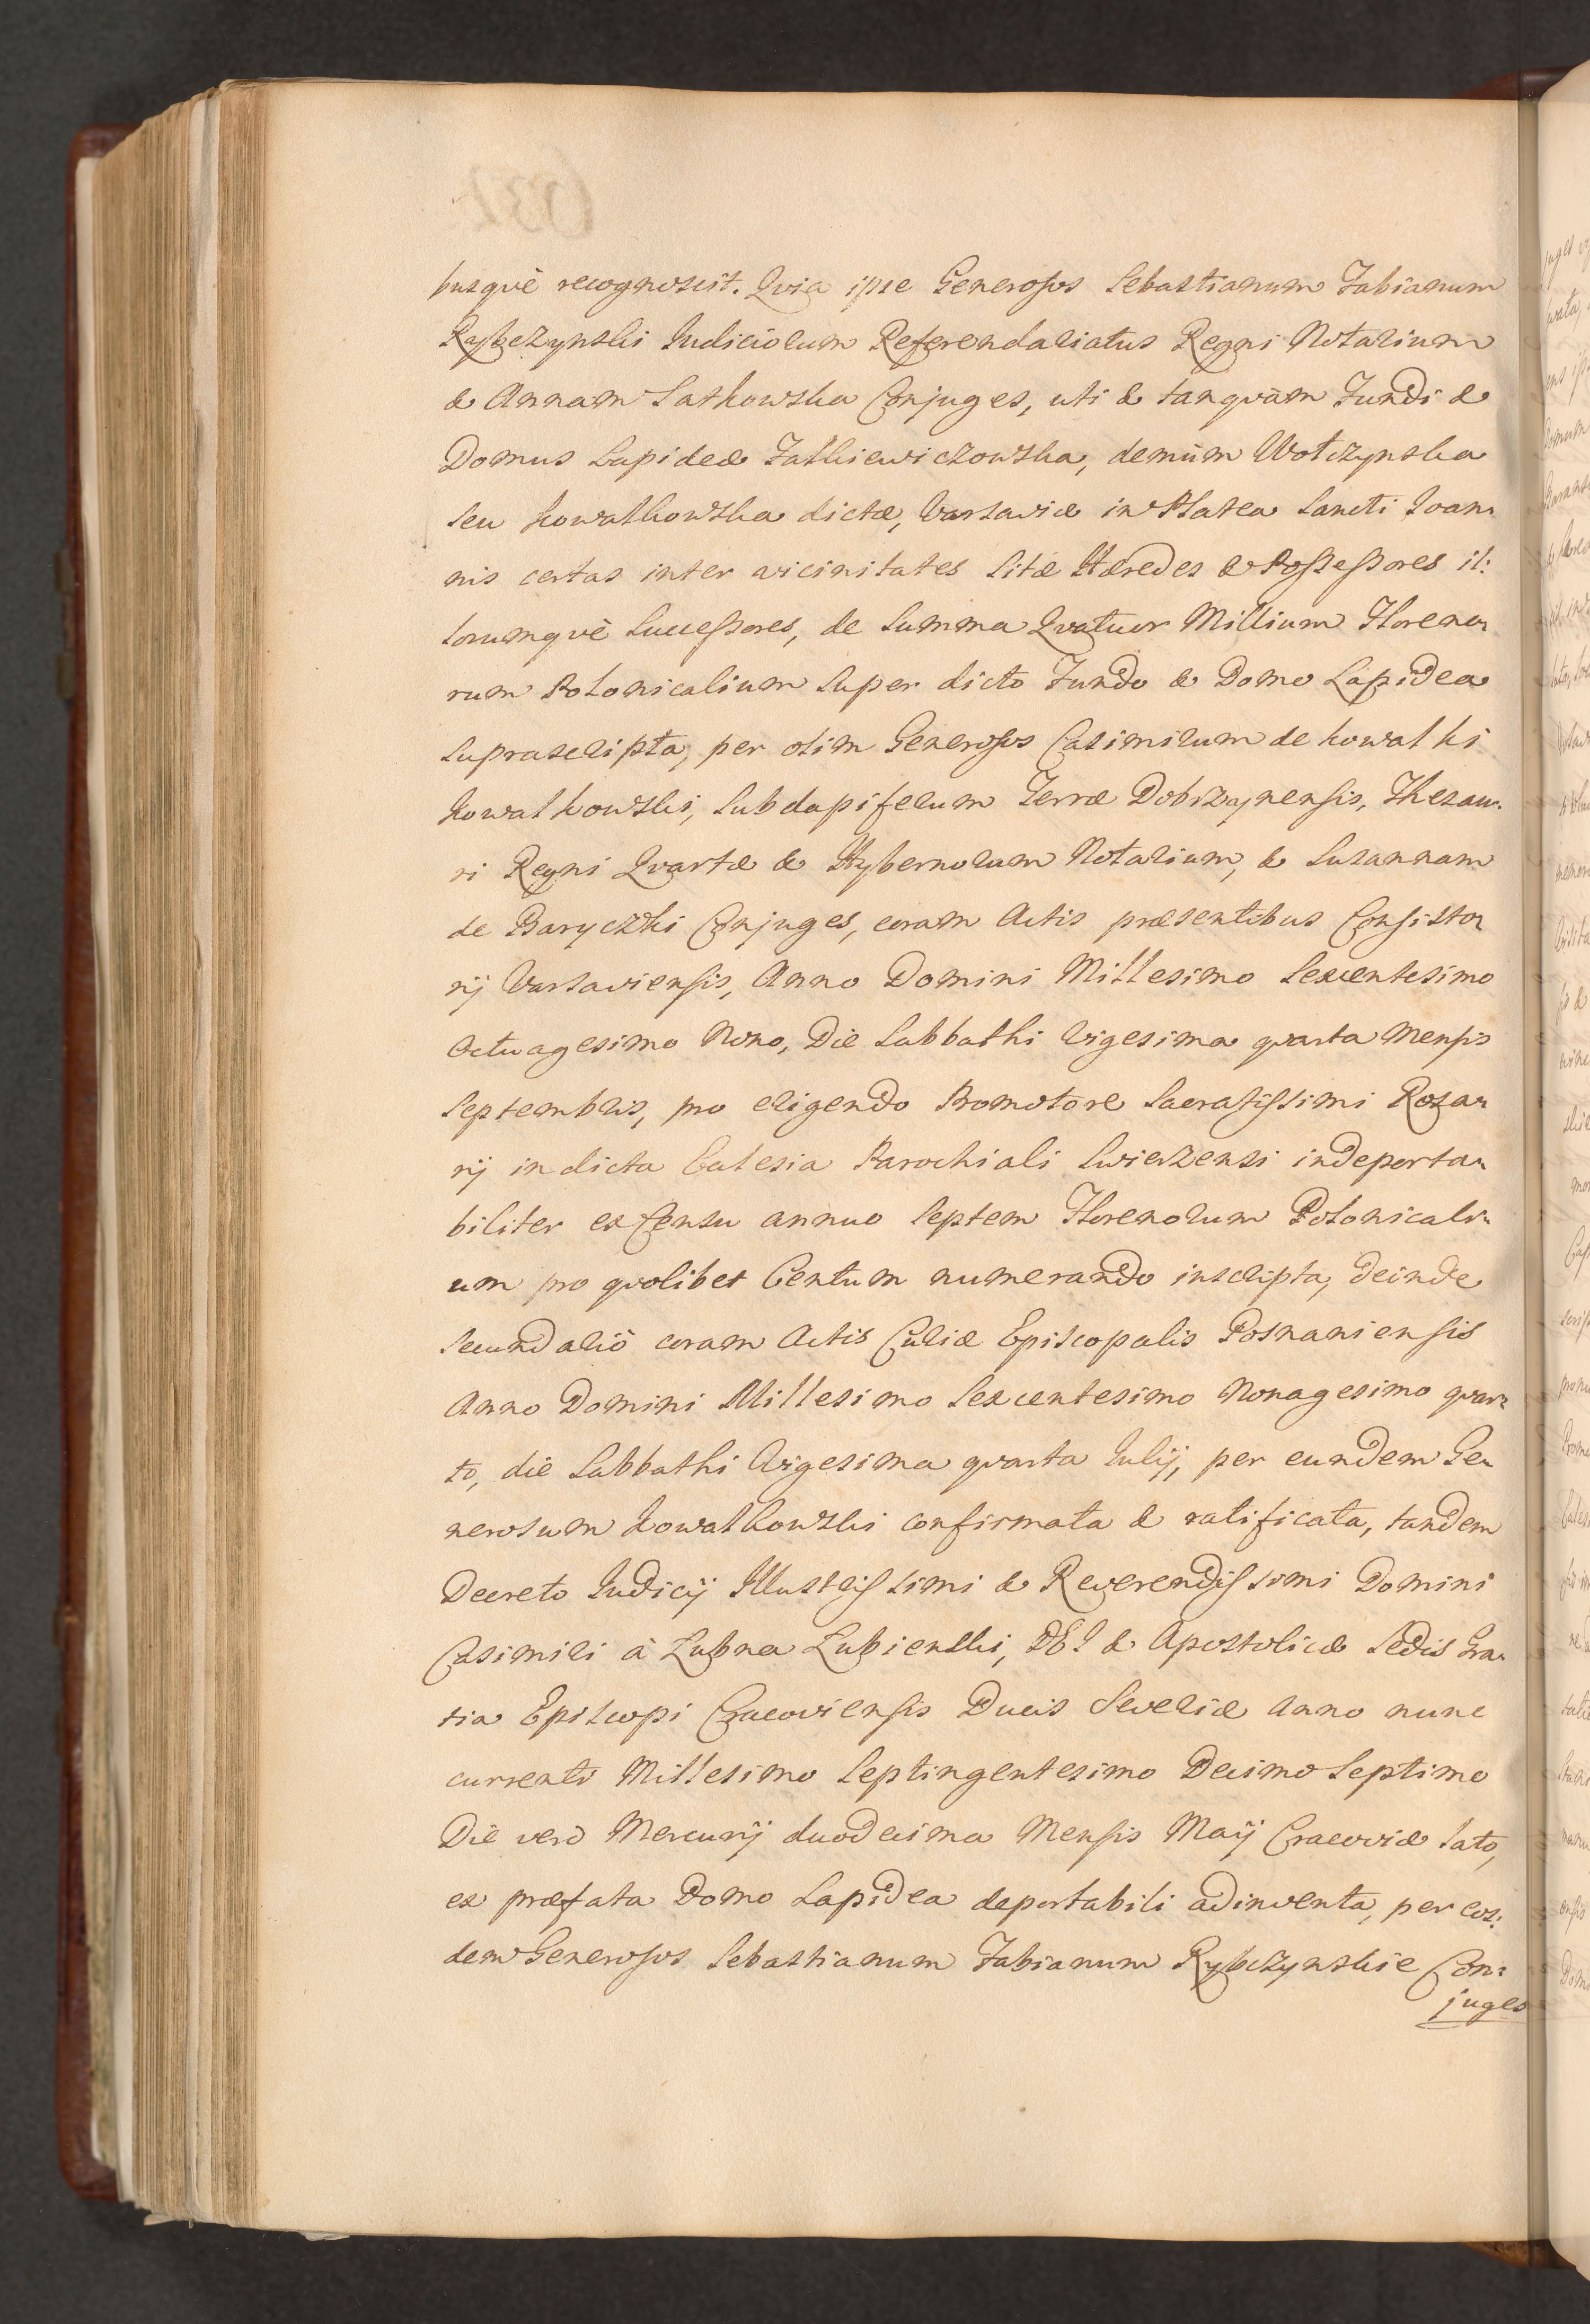 busquè recognoscit. Quia ipse Generosos Sebastianum Fabianum
Rybczynski Iudiciorum Referendariatus Regni Notarium
& Annam Satkowska Conjuges, uti & tanquàm Fundi &
Domus Lapideæ Fatkiewiczowska, demùm Wołczynska
seu Kowalkowska dictæ, Varsaviæ in Platea Sancti Ioan-
nis certas inter vicinitates sitæ Hæredes & Possessores il:
lorumquè Successores, de Summa Quatuor Millium Floreno-
rum Polonicalium super dicto Fundo & Domo Lapidea
suprascripta, per olim Generosos Casimirum de Kowalki
Kowalkowski, Subdapiferum Terræ Dobrzynensis, Thesau-
ri Regni Quartæ & Hybernorum Notarium, & Susannam
de Baryczki Conjuges, coram Actis præsentibus Consisto-
rij Varsaviensis, Anno Domini Millesimo Sexcentesimo
Octuagesimo Nono, Die Sabbathi Vigesima quarta Mensis
Septembris, pro eligendo Promotore Sacratissimi Rosa-
rij in dicta Eccl̃esia Parochiali Swierzensi indeporta-
biliter ex Censu annuo Septem Florenorum Polonicali-
um pro quolibet Centum numerando inscripta, deinde
secundariò coram Actis Curiæ Episcopalis Posnaniensis
Anno Domini Millesimo Sexcentesimo Nonagesimo quar-
to, die Sabbathi Vigesima quarta Iulij, per eundem Ge-
nerosum Kowalkowski confirmata & ratificata, tandem
Decreto Iudicij Illustrissimi & Reverendissimi Domini
Casimiri à Łubna Łubienski, DEI & Apostolicæ Sedis Gra-
tia Episcopi Cracoviensis Ducis Severiæ Anno nunc
currenti Millesimo Septingentesimo Decimo Septimo
Die verò Mercurij duodecima Mensis Maij Cracoviæ lato,
ex præfata Domo Lapidea deportabili adinventa, per eos:
dem Generosos Sebastianum Fabianum Rybczynskie Con:
juges